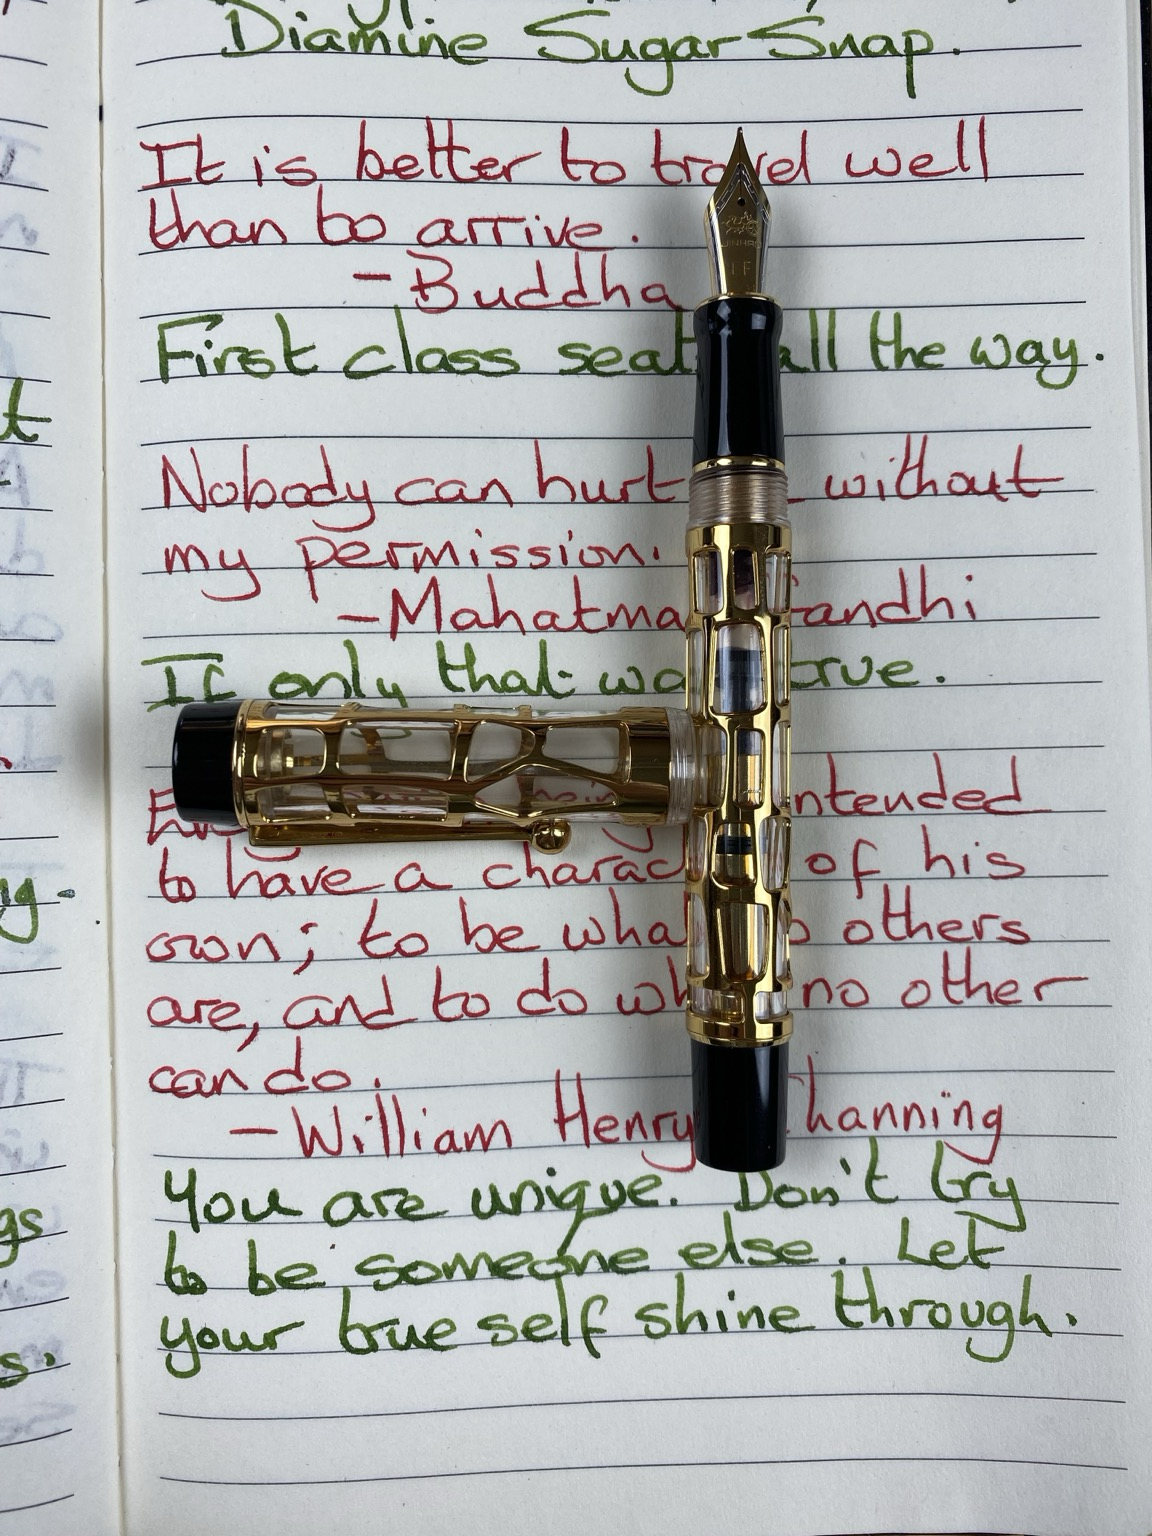 Diamine Sugar Snap.
It is better to travel well
than to arrive.
- Buddha
First class seats all the way.
Nobody can hurt without
my permission.
- Mahatma Gandhi
If only that was true.
intended
to have a character of his
own; to be what no others
are, and to do what no other
can do.
- William Henry Channing
You are unique. Don't try
to be someone else. Let
your true self shine through.
JINHAO
EF